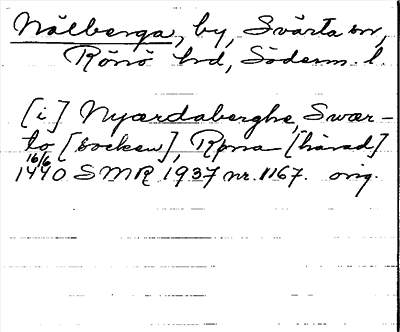 Nälberga, by, Svärta sn,
Rönö hd, Söderm. l.
[i] Nyærdaberghe, Swær-
to [socken], Røna [härad]
16/6
1440 SMR 1937 nr. 1167. orig.